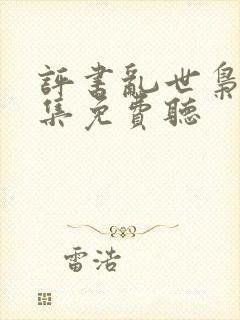 評書亂世梟
集免費聽
雷浩